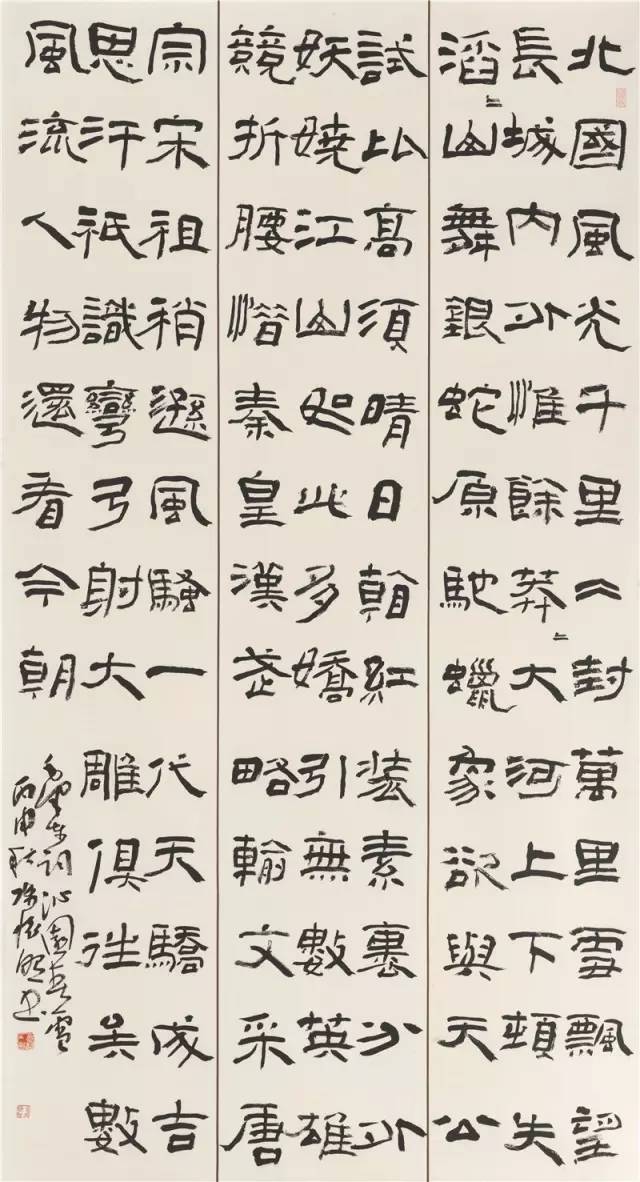 北國風光千里冰封萬里雪飄望
長城內外惟餘莽〻大河上下頓失
滔〻山舞銀蛇原馳蠟象欲與天公
試比高須晴日看紅裝素裹分外
妖嬈江山如此多嬌引無數英雄
競折腰惜秦皇漢武略輸文采唐
宗宋祖稍遜風騷一代天驕成吉
思汗祇識彎弓射大雕俱往矣數
風流人物還看今朝
毛澤東詞沁園春雪
丙申秋